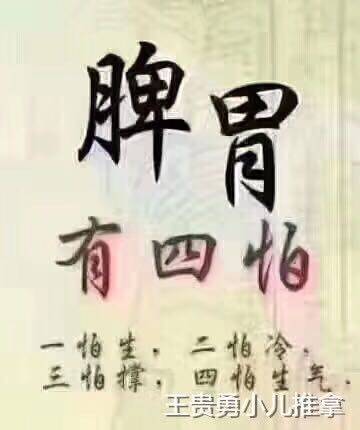 脾胃
有四怕
一怕生，二怕冷，
三怕撑，四怕生气．
王贵勇小儿推拿